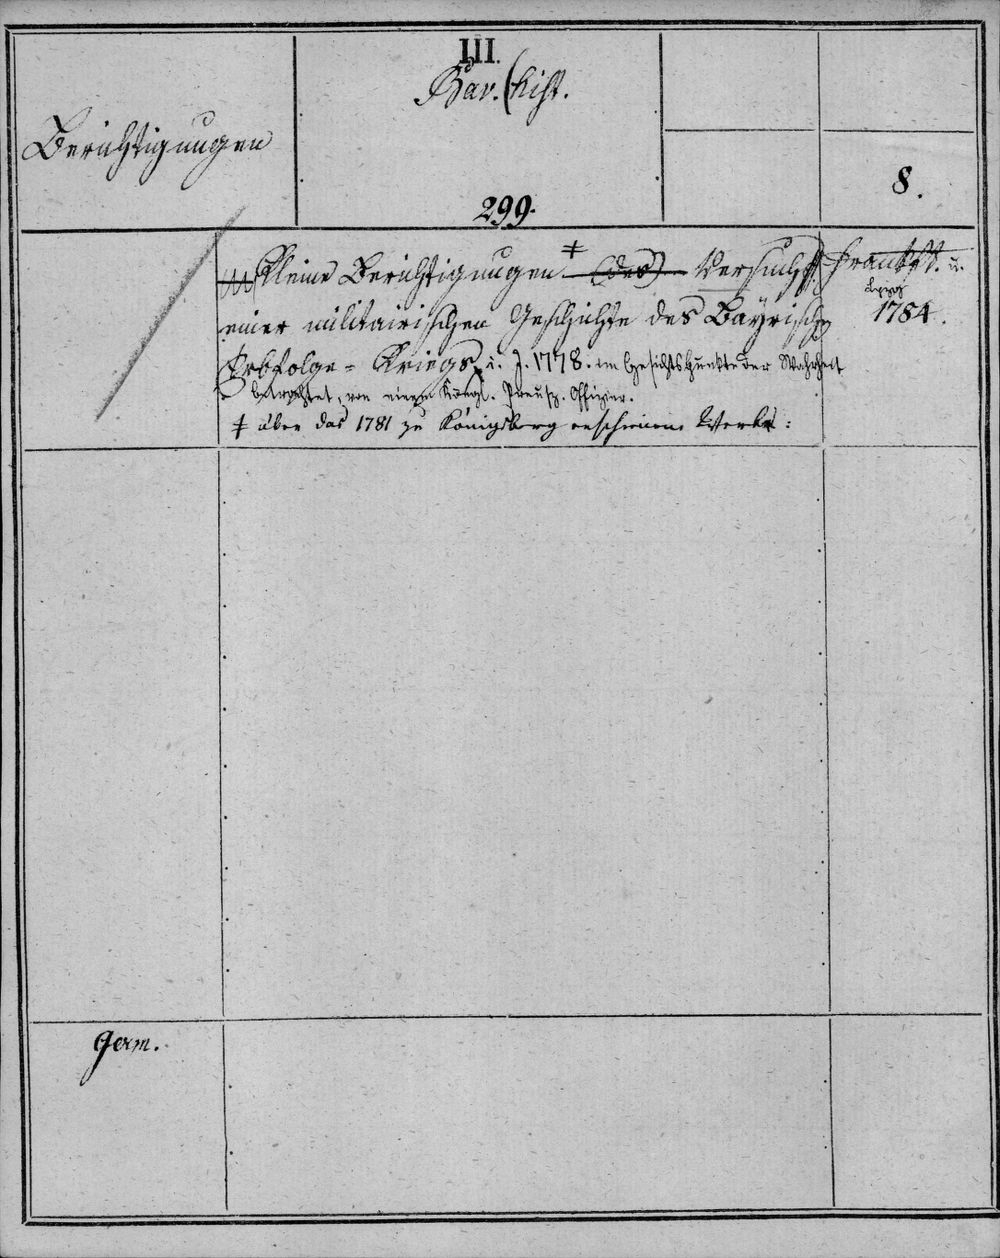 III.
Bav. (hist.
Berichtigungen
8.
299.
Kleine Berichtigungen ‡ (des) Versuchs
Frankft. u.
Lpzg
einer militairischen Geschichte des Bayrischen
1784.
Erbfolge-Kriegs v. J. 1778. im Gesichtspunkte der Wahrheit
betrachtet, von einem Königl. Preuß. Offizier.
‡ über das 1781 zu Königsberg erschienene Werk:
Germ.